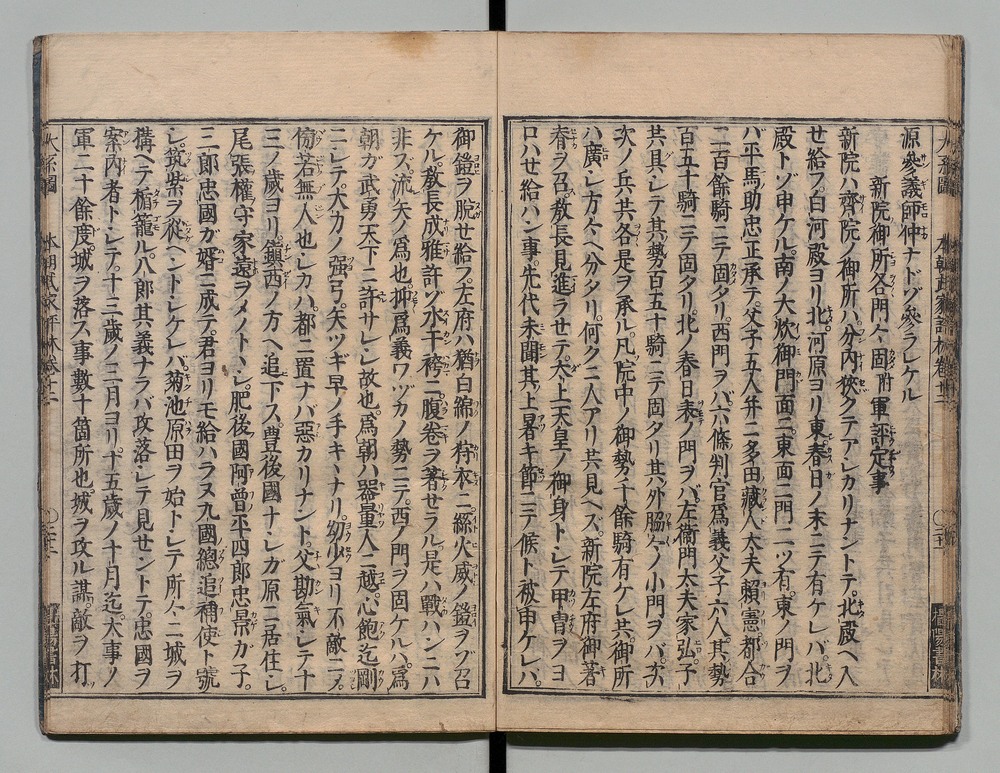 源參議師仲ナドゾ參ラレケル
新院御所各門々固附軍評定事
新院ハ齊院ノ御所ハ分内狹クテアシカリナントテ。北殿ヘ入
せ給フ。白河殿ヨリ北。河原ヨリ東。春日ノ末ニテ有ケレバ。北
殿トゾ申ケル。南ノ大炊御門面ニ。東面ニ門二ツ有。東ノ門ヲ
バ平馬助忠正承テ。父子五人并ニ多田藏人大夫賴憲都合
二百餘騎ニテ固タリ。西門ヲバ六條判官爲義父子六人。其勢
百五十騎ニテ固タリ。北ノ春日表ノ門ヲバ左衞門大夫家弘。子
共具シテ其勢百五十騎ニテ固タリ。其外脇々ノ小門ヲバ。次
次ノ兵共各是ヲ承ル。凡院中ノ御勢千餘騎有ケレ共。御所
ハ廣シ。方々ヘ分タリ。何ク二人アリ共見ヘス。新院左府御著
春ヲ召。敎長見進ラせテ。太上天皇ノ御身トシテ甲冑ヲヨ
ロハせ給ハン事。先代未聞。其上暑キ節ニテ候ト被申ケレハ。
御鎧ヲ脱せ給フ。左府ハ猶白綿ノ狩衣ニ。縹火威ノ鎧ヲゾ召
ケル。敎長成雅許ゾ水干袴ニ腹卷ヲ著せラル。是ハ戰ハンニハ
非ズ。流矢ノ爲也。抑爲義ワヅカノ勢ニテ。西ノ門ヲ固ケルハ。爲
朝ガ武勇天下ニ許サレシ故也。爲朝ハ器量人ニ越。心飽迄剛
ニシテ。大カノ强弓。矢ツギ早ノ手キヽナリ。幼少ヨリ不敵ニメ。
傍若無人也シカハ。都ニ置ナバ惡カリナント。父勘氣シテ十
三ノ歲ヨリ。鎭西ノ方ヘ追下ス。豊後國ナトシガ原ニ居住シ。
尾張權守家遠ヲメノトヽシ。肥後國阿曾平四郎忠景ガ子。
三郎忠國ガ婿ニ成テ。君ヨリモ給ハラヌ九國總追補使ト號
シ。筑紫ヲ從ヘントシケレバ。菊池原田ヲ始トシテ。所々ニ城ヲ
構ヘテ楯籠ル。八郎其義ナラバ攻落シテ見せントテ。忠國ヲ
案内者トシテ。十三歲ノ三月ヨリ。十五歲ノ十月迄。大事ノ
軍二十餘度。城ヲ落ス事數十箇所也。城ヲ攻ル謀。敵ヲ打